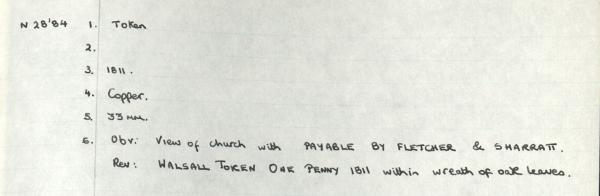 N 28'84 1. Token
2.
3. 1811.
4. Copper.
5. 33 mm.
6. Obv: View of church with PAYABLE BY FLETCHER & SHARRATT.
Rev: WALSALL TOKEN ONE PENNY 1811 within wreath of oak leaves.